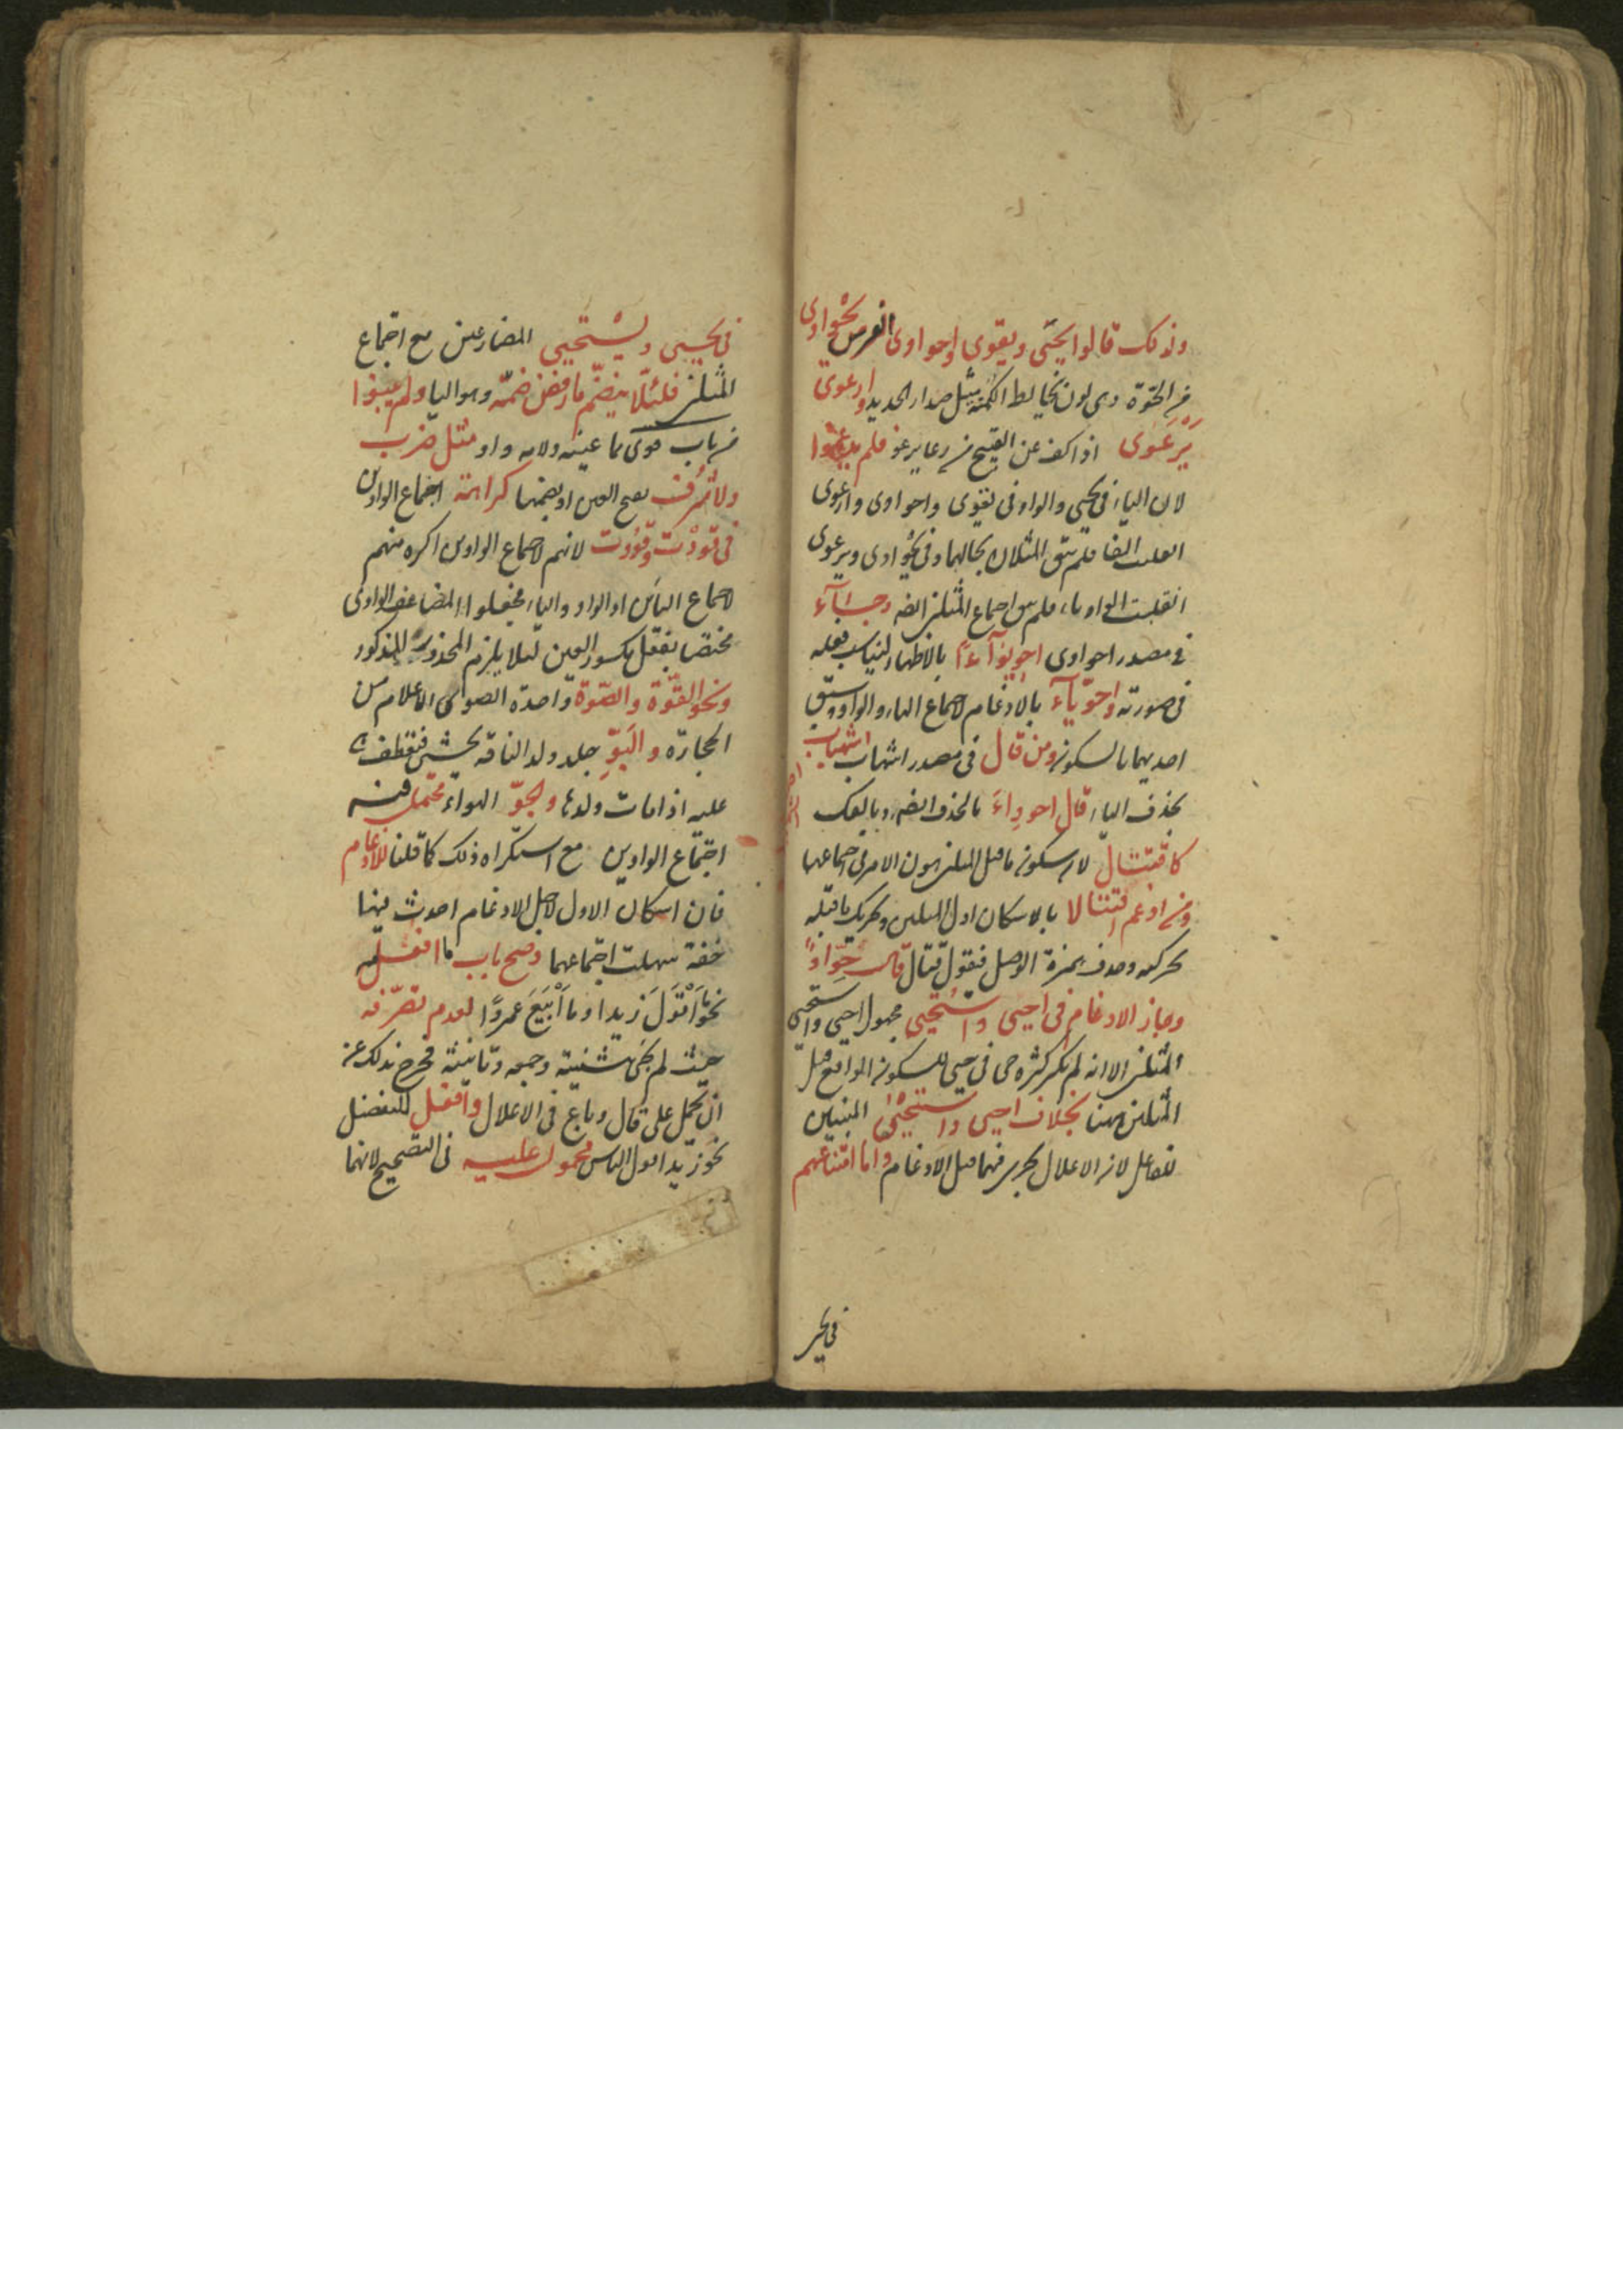 ولذلك قالوا يحيى ويقوى واحواوى الفرس يحواوى
من الحوة وهى لون يخالط الكمتة مثل صداء الحديد وارعوى
يرعوى اذا كف عن القبيح من رعا يرعو فلم يدغموا
لان الياء فى يحيى والواو فى يقوى واحواوى وارعوى
انقلبت الفا فلم يبق المثلان بحالهما وفى يحواوى ويرعوى
انقلبت الواو ياء فلم يبق اجتماع المثلين ايضا وجاء
فى مصدر احواوى احويواءً بالاظهار ليناسب فعله
فى صورته واحوياء بالادغام لاجتماع الياء والواو وسبق
احديهما بالسكون ومن قال فى مصدر اشهاب اشهباب
بحذف الياء قال احوواء بالحذف ايضا وبالفك
كاقتتال لان سكون ما قبل المثلين يهون الامر فى اجتماعهما
ومن ادغم اقتتالا بالاسكان اول المثلين وتحريك ما قبله
بحركته وحذف همزة الوصل فيقول قتال قال حواءً
وجاز الادغام فى احيى واستحيى مجهول احيى واستحيى
المثلين الا انه لم يكثر كثرة حى فى حيى للسكون الواقع قبل
المثلين ههنا بخلاف احيى واستحيى المبنيين
للفاعل لان الاعلال يجرى فيهما قبل الادغام واما امتناعهم
فى يحيى
فى يحيى ويستحيى المضارعين مع اجتماع
المثلين فلئلا ينضم ما رفض ضمه وهو اليا ولم يبنوا
من باب قوى مما عينه ولامه واو مثل ضرب
ولا شرف بفتح العين او بضمها كراهة اجتماع الواوين
فى قووت وقووت لانهم لاجتماع الواوين اكره منهم
لاجتماع اليائين او الواو والياء فجعلوا المضاعف الواوى
مختصا بفعل مكسور العين لئلا يلزم المحذور المذكور
ونحو القوة والصوة واحدة الصوى الاعلام من
الحجارة والبو جلد ولد الناقة يحشى فتعطف
عليه اذا مات ولدها والجو الهواء محتمل فيه
اجتماع الواوين مع استكراه ذلك كما قلنا للادغام
فان اسكان الاول لاجل الادغام احدث فيها
خفة سهلت اجتماعهما وصح باب ما افعله
نحو ما اقول زيدا وما ابيع عمروا لعدم تصرفه
حيث لم يجئ تثنيته وجمعه وتانيثه فخرج بذلك عن
ان يحمل على قال وباع فى الاعلال وافعل للتفضيل
نحو زيد اقول الناس محمول عليه فى التصحيح لانهما